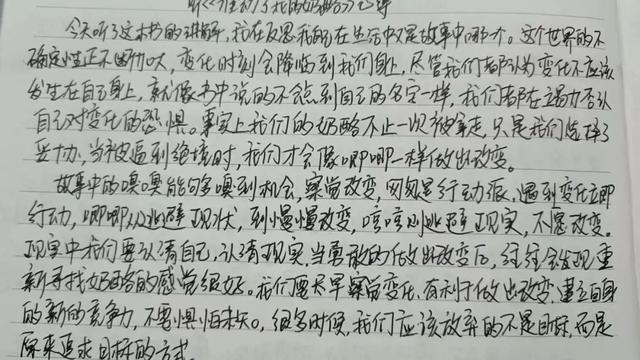 听《谁动了我的奶酪》心得
今天听了这本书的讲解，我在反思我自己在生活中又是故事中哪个。这个世界的不
确定性正不断加大，变化时刻会降临到我们身上，尽管我们都认为变化不应该
发生在自己身上，就像书中说的不会念到自己的名字一样，我们都在竭力否认
自己对变化的恐惧。事实上我们的奶酪不止一次被拿走，只是我们选择了
妥协，当被逼到绝境时，我们才会像唧唧一样做出改变。
故事中的嗅嗅能够嗅到机会，察觉改变，匆匆是行动派，遇到变化立即
行动，唧唧从逃避现状，到慢慢改变，哼哼则逃避现实，不愿改变。
现实中我们要认清自己，认清现实，当勇敢的做出改变后，往往会发现重
新寻找奶酪的感觉很好。我们要尽早察觉变化，有利于做出改变，建立自身
的新的竞争力，不要惧怕未知。很多时候，我们应该放弃的不是目标，而是
原来追求目标的方式。